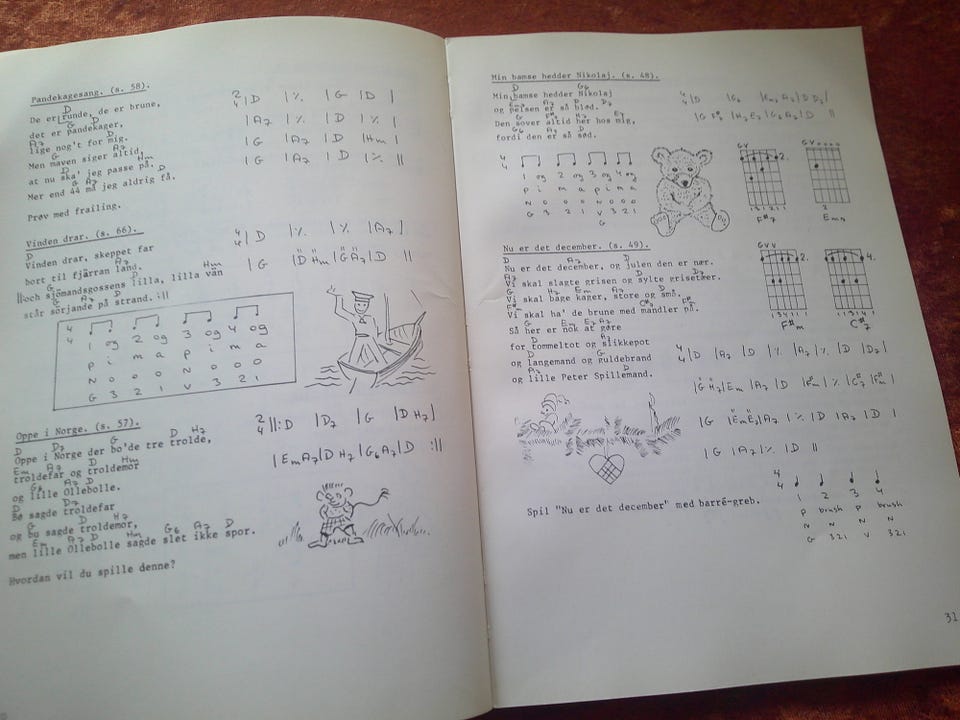 Pandekagesang. (s. 58).
D
De er runde, de er brune,
G D
det er pandekager,
A7 D
lige nog't for mig.
G A7
Men maven siger altid,
D Hm
at nu ska' jeg passe på.
G A7 D
Mer end 44 må jeg aldrig få.
Prøv med frailing.
2/4 |D |٪ |G |D |
|A7 |٪ |D |٪ |
|G |A7 |D |Hm |
|G |A7 |D |٪ ||
Vinden drar. (s. 66).
D
Vinden drar, skeppet far
A7
bort til fjärran land.
G D Hm
||och sjömandsgossens lilla, lilla vän
G A7 D
står sörjande på strand. :||
4/4 |D |٪ |٪ |A7 |
|G |D Hm |G A7 |D ||
4/4
1 og 2 og 3 og 4 og
p i m a p i m a
N o o o N o o o
G 3 2 1 V 3 2 1
Oppe i Norge. (s. 57).
D D7 G D H7
Oppe i Norge der bo'de tre trolde,
Em A7 D Hm
troldefar og troldemor
G6 A7 D
og lille Ollebolle.
D D7
Bø sagde troldefar
G D H7
og bu sagde troldemor,
Em A7 D Hm G6 A7 D
men lille Ollebolle sagde slet ikke spor.
Hvordan vil du spille denne?
2/4 ||:D |D7 |G |D H7 |
|Em A7 |D H7 |G6 A7 |D :||
Min bamse hedder Nikolaj. (s. 48).
D G6
Min bamse hedder Nikolaj
Em7 A7 D D7
og pelsen er så blød.
G F#7 H7 E7
Den sover altid her hos mig,
G6 A7 D
fordi den er så sød.
4/4 |D |G6 |Em7 A7 |D D7 |
|G F#7 |H7 E7 |G6 A7 |D ||
4/4
1 og 2 og 3 og 4 og
p i m a p i m a
N o o o N o o o
G 3 2 1 V 3 2 1
G
G V
2.
1 3 1 2 1 1
F#7
G V o o o o
2
Em7
Nu er det december. (s. 49).
D A7 D
Nu er det december, og julen den er nær.
A7 D D7
Vi skal slagte grisen og sylte grisetæer.
G H7 Em A7 D
Vi skal bage kager, store og små.
F#m C#7 F#m
Vi skal ha' de brune med mandler på.
G Em E7 A7
Så her er nok at gøre
D A7
for tommeltot og slikkepot
D G
og langemand og guldebrand
A7 D
og lille Peter Spillemand.
G V V
2.
1 3 4 1 1 1
F#m
4.
1 3 1 4 1
C#7
4/4 |D |A7 |D |٪ |A7 |٪ |D |D7 |
|G H7 |Em |A7 |D |F#m |٪ |C#7 |F#m |
|G |Em E7 |A7 |٪ |D |A7 |D |
|G |A7 |٪ |D ||
Spil "Nu er det december" med barré-greb.
4/4
1 2 3 4
p brush p brush
N N N N
G 321 V 321
31